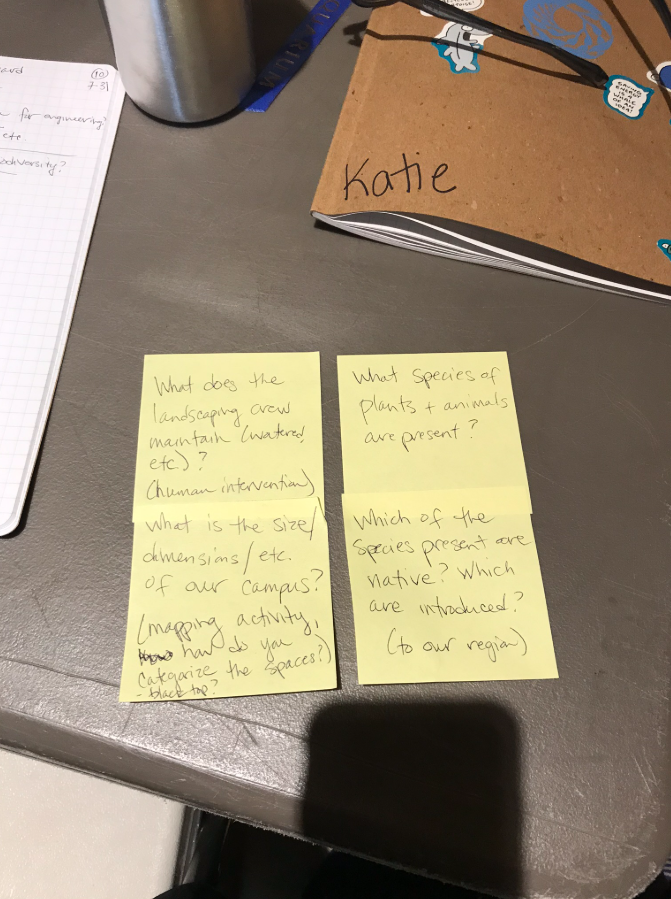 10
7-31
for engineering?
etc
odiversity?
ARIUM
SAVING
ENERGY
IS
WHALE
OF AN
IDEA!
Katie
What does the
landscaping crew
maintain (watered,
etc.)?
(human intervention)
What is the size/
dimensions/etc.
of our campus?
(mapping activity,
how do you
categorize the spaces?)
- black top?
What species of
plants + animals
are present?
Which of the
species present are
native? Which
are introduced?
(to our region)